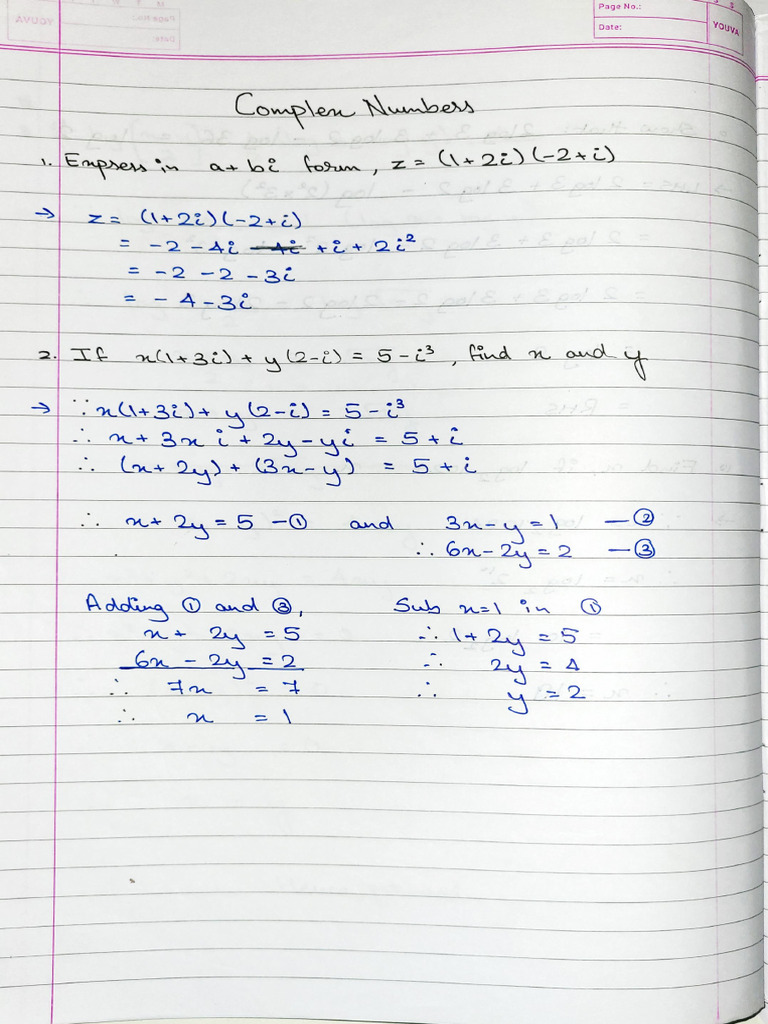 Page No.:
Date:
YOUVA
Complex Numbers
1. Express in a+bi form, z = (1+2i)(-2+i)
→ z = (1+2i)(-2+i)
= -2 - 4i + i + 2i²
= -2 - 2 - 3i
= - 4 - 3i
2. If x(1+3i) + y(2-i) = 5 - i³, find x and y
→ ∵ x(1+3i) + y(2-i) = 5 - i³
∴ x + 3x i + 2y - yi = 5 + i
∴ (x + 2y) + (3x - y) = 5 + i
∴ x + 2y = 5 — ① and 3x - y = 1 — ②
∴ 6x - 2y = 2 — ③
Adding ① and ③,
x + 2y = 5
6x - 2y = 2
∴ 7x = 7
∴ x = 1
Sub x=1 in ①
∴ 1 + 2y = 5
∴ 2y = 4
∴ y = 2